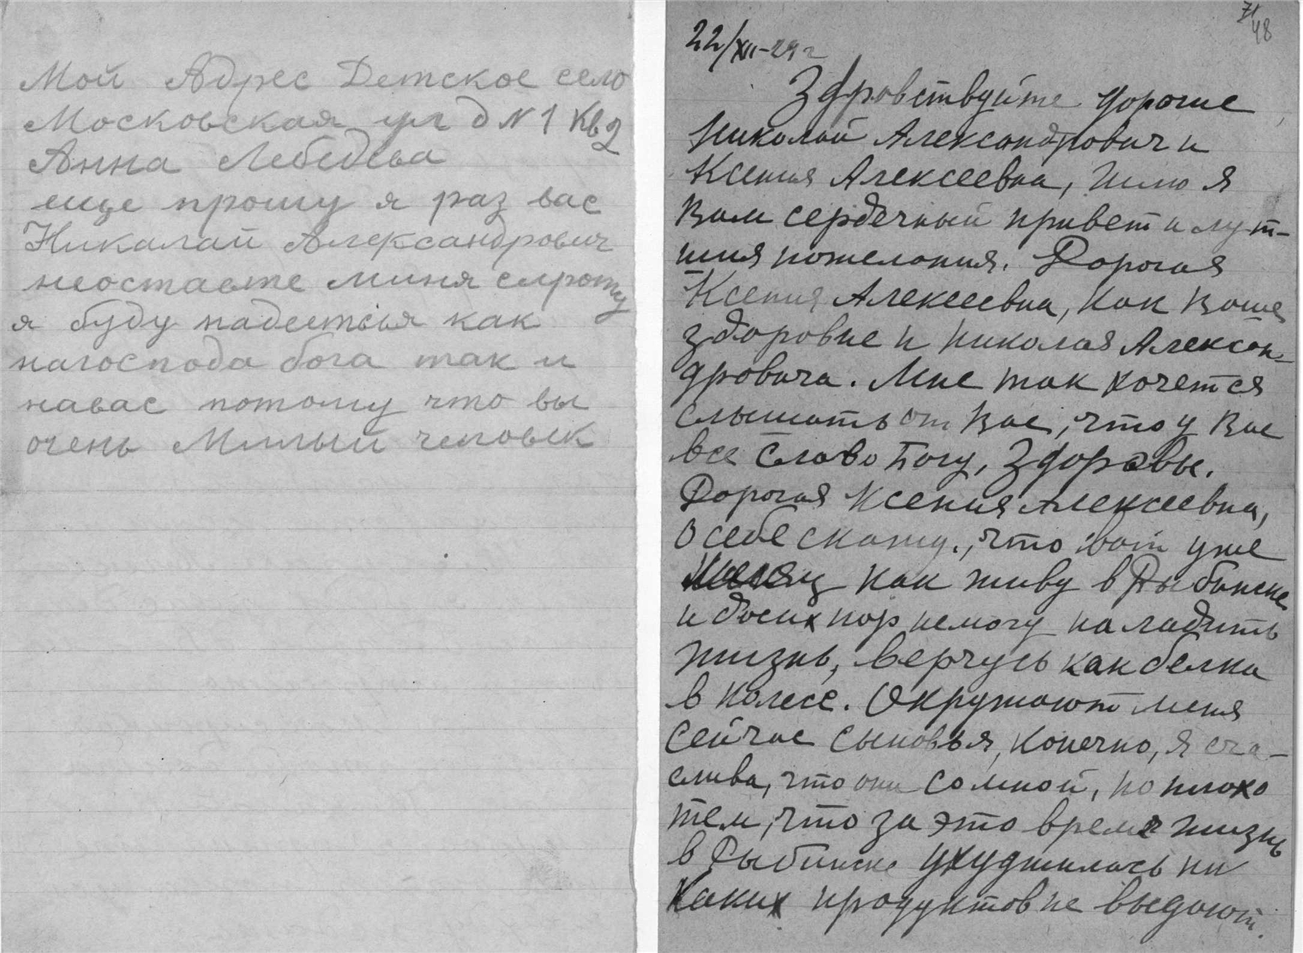 Мой Адрес Детское село
Московская ул д N 1 кв 2
Анна Лебедева
еще прошу я раз вас
Николай Александрович
неостаьте миня сироту
я буду надеетсья как
нагоспода бога так и
навас потому что вы
очень Милый человек
71
48
22/XII-29 г
Здравствуйте дорогие
Николай Александрович и
Ксения Алексеевна, шлю я
Вам сердечный привет и лут-
шия пожелания. Дорогая
Ксения Алексеевна, как Ваше
здоровие и Николая Алексан-
дровича. Мне так хочется
слышать от Вас, что у Вас
все слава Богу, здоровы.
Дорогая Ксения Алексеевна,
о себе скажу, что вот уже
месяц как живу в Рыбинске
и досих пор немогу наладить
жизнь, верчусь как белка
в колесе. Окружают меня
сейчас сыновья, конечно, я сча-
слива, что они со мной, но плохо
тем, что за это время жизнь
в Рыбинске ухудшилась ни
каких продуктов не выдают.